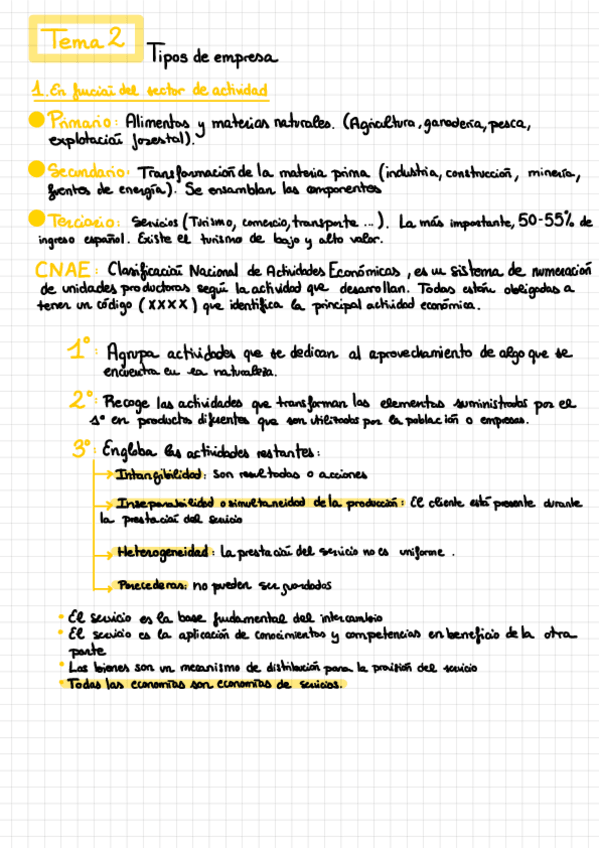 Tema 2
Tipos de empresa
1. En función del sector de actividad
Primario: Alimentos y materias naturales. (Agricultura, ganadería, pesca,
explotación forestal).
Secundario: Transformación de la materia prima (industria, construcción, minería,
fuentes de energía). Se ensamblan los componentes
Terciario: Servicios (Turismo, comercio, transporte ...). La más importante, 50-55% de
ingreso español. Existe el turismo de bajo y alto valor.
CNAE: Clasificación Nacional de Actividades Económicas, es un sistema de numeración
de unidades productoras según la actividad que desarrollan. Todas están obligadas a
tener un código (XXXX) que identifica la principal actividad económica.
1º: Agrupa actividades que se dedican al aprovechamiento de algo que se
encuentra en la naturaleza.
2º: Recoge las actividades que transforman los elementos suministrados por el
1º en productos diferentes que son utilizados por la población o empresas.
3º: Engloba las actividades restantes:
Intangibilidad: Son resultados o acciones
Inseparabilidad o simultaneidad de la producción: El cliente está presente durante
la prestación del servicio
Heterogeneidad: La prestación del servicio no es uniforme.
Perecederos: no pueden ser guardados
• El servicio es la base fundamental del intercambio
• El servicio es la aplicación de conocimientos y competencias en beneficio de la otra
parte
• Los bienes son un mecanismo de distribución para la provisión del servicio
• Todas las economías son economías de servicios.